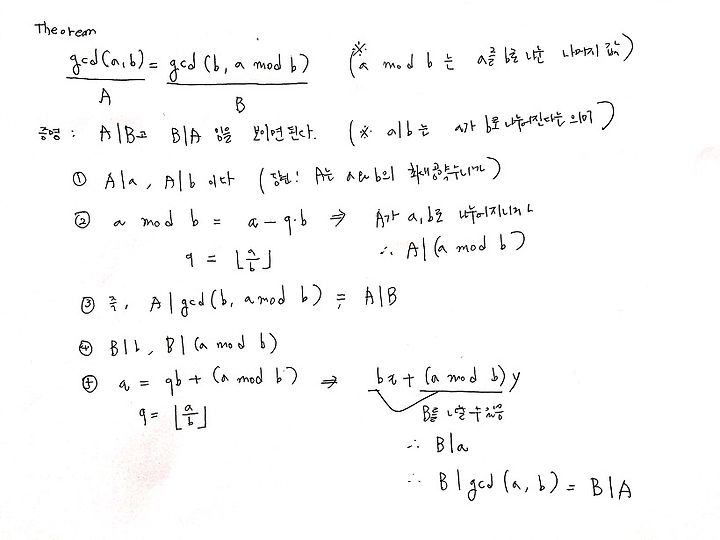 Theorem
gcd(a,b) = gcd(b, a mod b) (※ a mod b 는 a를 b로 나눈 나머지 값)
A B
증명 : A|B고 B|A 임을 보이면 된다. (※ a|b 는 a가 b로 나누어진다는 의미)
① A|a, A|b 이다 (당연! A는 a와 b의 최대공약수니까)
② a mod b = a - q·b ⇒ A가 a, b로 나누어지니까
q = ⌊a/b⌋ ∴ A|(a mod b)
③ 즉, A|gcd(b, a mod b) = A|B
④ B|b, B|(a mod b)
⑤ a = qb + (a mod b) ⇒ bx + (a mod b)y
q = ⌊a/b⌋ B를 나눌 수 있음
∴ B|a
∴ B|gcd(a, b) = B|A